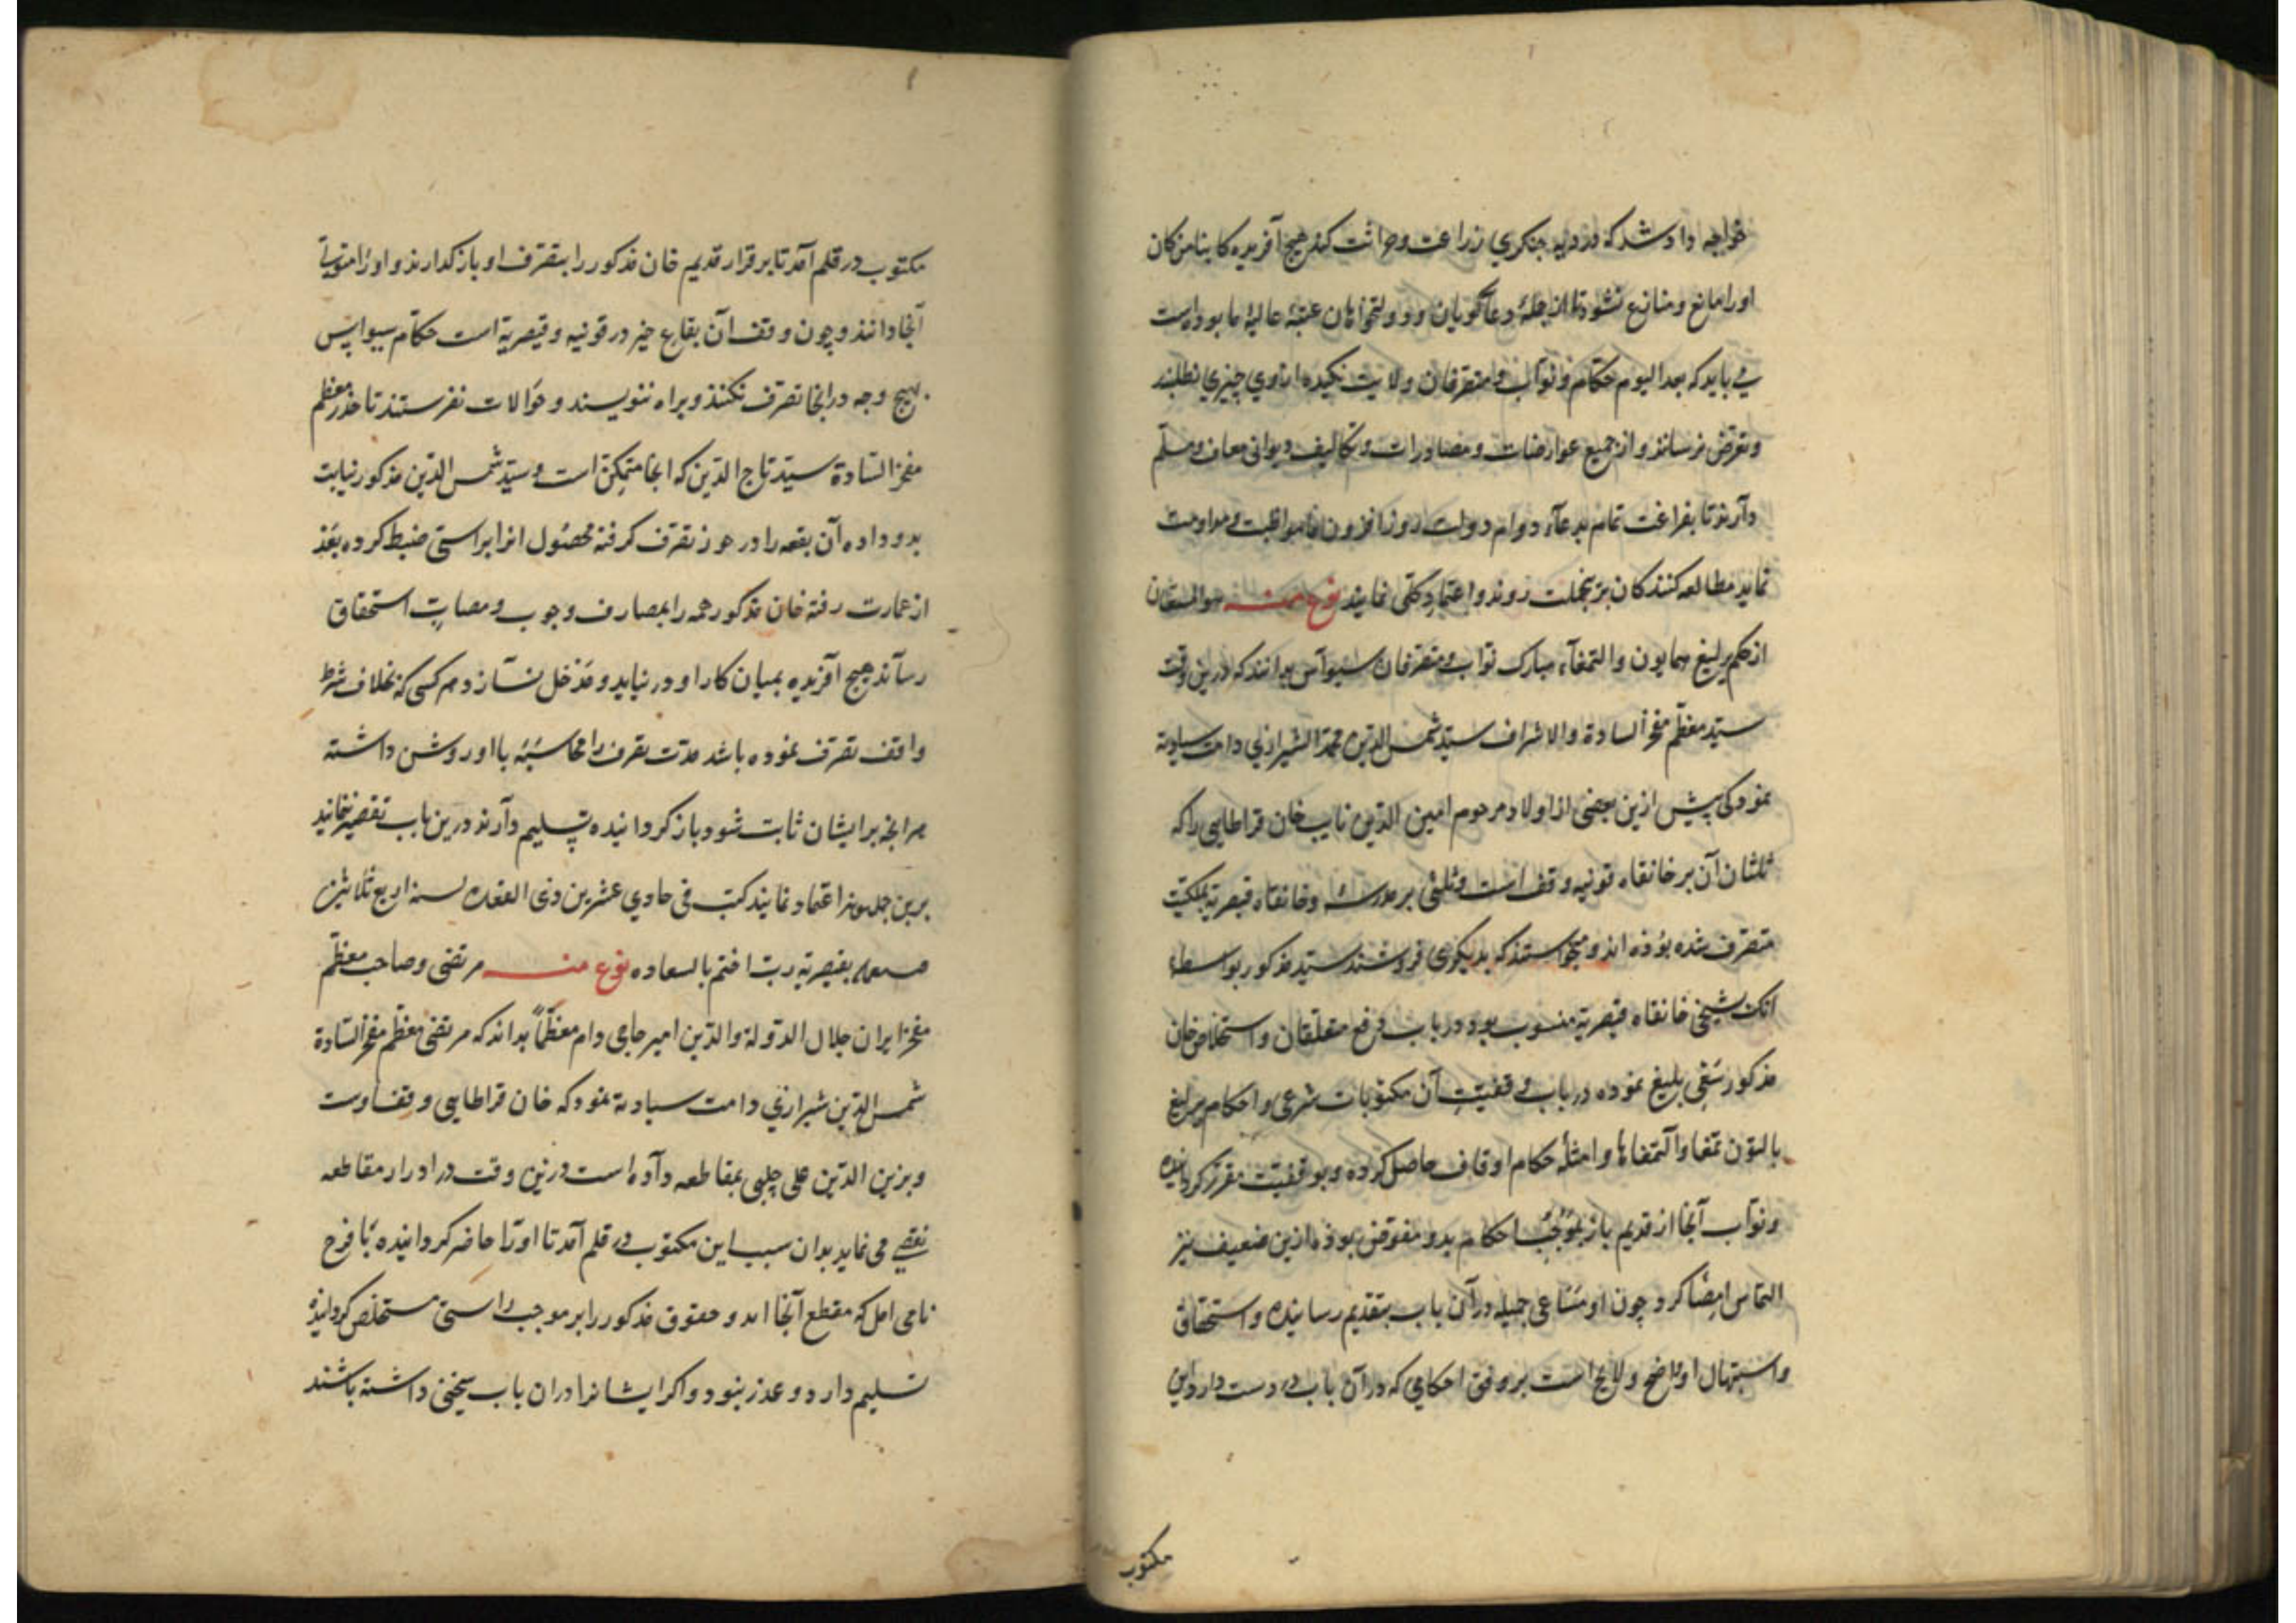 خواجه داد شد که در دیه جنکری زراعت و حراثت کند هیچ آفریده کاینا من کان
اورا مانع و منازع نشود تا از جملهٔ دعاکویان و دولتخواهان عتبهٔ عالیهٔ ما بوده است
می باید که بعد الیوم حکام و نواب و متصرفان ولایت نکیده ازوی چیزی نطلبند
وتعرض نرسانند و از جمیع عوارضات ومصادرات و تکالیف دیوانی معاف ومسلم
دارند تا بفراغت تمام بدعآء دوام دولت روز افزون ما مواظبت و مداومت
نماید مطالعه کنندکان برینجملت روند واعتماد کلی نمایند نوع منه هو المستعان
از حکم یرلیغ همایون والتمغآء مبارک نواب ومتصرفان سیواس بدانند که درین وقت
سید معظم مفخر السادة والاشراف سید شمس الدین محمد الشیرازی دامت سیادته
نمود کی پیش ازین بعضی از اولاد مرحوم امین الدین نایب خان قراطایی را که
ثلثان آن بر خانقاه قونیه وقف است وثلثی بر مدرسه وخانقاه قیصریه بملکیت
متصرف شده بوده اند و میخواستند که بدیکری فروشند سید مذکور بواسطهٔ
انک شیخی خانقاه قیصریه منسوب بود در باب دفع متعلقان واستخلاص خان
مذکور سعی بلیغ نموده در باب وقفیت آن مکتوبات شرعی و احکام یرلیغ
بالتون تمغا والتمغاها وامثلهٔ حکام اوقاف حاصل کرده و بوقفیت مقرر کردانیده
ونواب آنجا از قدیم باز بموجب احکام بدو مفوض بوده ازین ضعیف نیز
التماس امضا کرد چون او مساعی جمیله در آن باب بتقدیم رسانیده واستحقاق
واستیهال او واضح ولایح است بر وفق احکامی که در آن باب در دست دارد این
مکتوب
مکتوب در قلم آمد تا بر قرار قدیم خان مذکور را بتصرف او باز کذارند و اورا متولی
آنجا دانند و چون وقف آن بقاع خیر در قونیه وقیصریه است حکام سیواس
بهیچ وجه در آنجا تصرف نکنند و براه ننویسند و حوالات نفرستند تا معظم
مفخر السادة سید تاج الدین که آنجا متمکن است و سید شمس الدین مذکور نیابت
بدو داده آن بقعه را در تصرف کرفته محصول انرا براستی ضبط کرده بعد
از عمارت رقبهٔ خان مذکور همه را بمصارف وجوب ومصاب استحقاق
رساند هیچ آفریده بمیان کار او در نیاید و مدخل نسازد و هر کسی که بخلاف شرط
واقف تصرف نموده باشد مدت تصرف را محاسبه با او روشن داشته
هر انچه بر ایشان ثابت شود باز کردانیده تسلیم دارند درین باب تقصیر ننمایند
برین جمله روند اعتماد نمایند کتب فی حادی عشرین ذی القعده لسنه اربع ثلاثین
بقیصریه رب اختم بالسعاده نوع منه مرتضی وصاحب معظم
مفخر ایران جلال الدولة والدین امیر حاجی دام معظماً بداند که مرتضی معظم مفخر السادة
شمس الدین شیرازی دامت سیادته نمود که خان قراطایی وقف اوست
وبزین الدین علی چلبی بمقاطعه داده است درین وقت در ادرار مقاطعه
نقصی می نماید بدان سبب این مکتوب در قلم آمد تا اورا حاضر کردانیده با فرح
نامی که مقطع آنجا اند و حقوق مذکور را بر موجب راستی مستخلص کردانیده
تسلیم دارد و عذر نبود و اکر ایشانرا دران باب سخنی داشته باشند